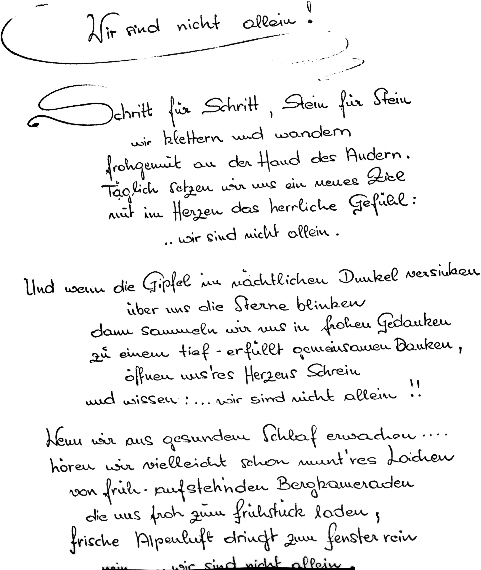 Wir sind nicht allein!
Schritt für Schritt, Stein für Stein
wir klettern und wandern
frohgemut an der Hand des Andern.
Täglich setzen wir uns ein neues Ziel
mit im Herzen das herrliche Gefühl:
.. wir sind nicht allein.
Und wenn die Gipfel im nächtlichen Dunkel versinken
über uns die Sterne blinken
dann sammeln wir uns in frohen Gedanken
zu einem tief-erfüllt gemeinsamen Danken,
öffnen uns'res Herzens Schrein
und wissen: ... wir sind nicht allein!!
Wenn wir aus gesundem Schlaf erwachen ....
hören wir vielleicht schon munt'res Lachen
von früh-aufsteh'nden Bergkameraden
die uns froh zum Frühstück laden,
frische Alpenluft dringt zum Fenster rein
nein ... wir sind nicht allein.